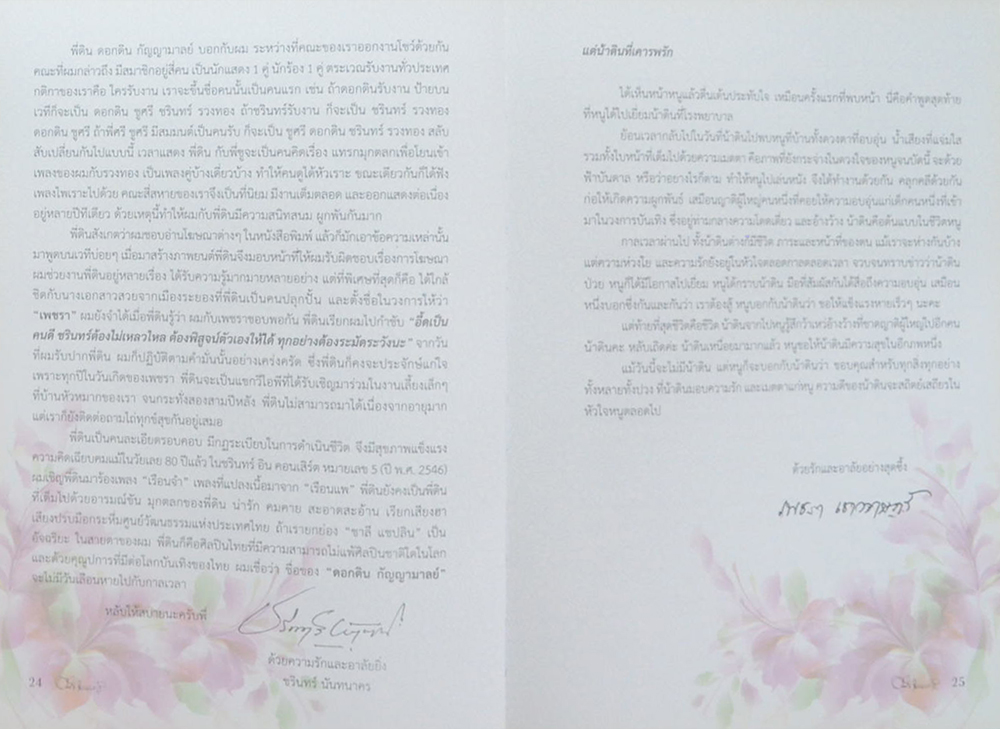 พี่ดิน ดอกดิน กัญญามาลย์ บอกกับผม ระหว่างที่คณะของเราออกงานโชว์ด้วยกัน
คณะที่ผมกล่าวถึง มีสมาชิกอยู่สี่คน เป็นนักแสดง 1 คู่ นักร้อง 1 คู่ ตระเวณรับงานทั่วประเทศ
กติกาของเราคือ ใครรับงาน เราจะขึ้นชื่อคนนั้นเป็นคนแรก เช่น ถ้าดอกดินรับงาน ป้ายบน
เวทีก็จะเป็น ดอกดิน ชูศรี ชรินทร์ รวงทอง ถ้าชรินทร์รับงาน ก็จะเป็น ชรินทร์ รวงทอง
ดอกดิน ชูศรี ถ้าพี่ศรี ชูศรี มีสมมนต์เป็นคนรับ ก็จะเป็น ชูศรี ดอกดิน ชรินทร์ รวงทอง สลับ
สับเปลี่ยนกันไปแบบนี้ เวลาแสดง พี่ดิน กับพี่ชูจะเป็นคนคิดเรื่อง แทรกมุกตลกเพื่อโยนเข้า
เพลงของผมกับรวงทอง เป็นเพลงคู่บ้างเดี่ยวบ้าง ทำให้คนดูได้หัวเราะ ขณะเดียวกันก็ได้ฟัง
เพลงไพเราะไปด้วย คณะสี่สหายของเราจึงเป็นที่นิยม มีงานเต็มตลอด และออกแสดงต่อเนื่อง
อยู่หลายปีทีเดียว ด้วยเหตุนี้ทำให้ผมกับพี่ดินมีความสนิทสนม ผูกพันกันมาก
พี่ดินสังเกตว่าผมชอบอ่านโฆษณาต่างๆ ในหนังสือพิมพ์ แล้วก็มักเอาข้อความเหล่านั้น
มาพูดบนเวทีบ่อยๆ เมื่อมาสร้างภาพยนต์พี่ดินจึงมอบหน้าที่ให้ผมรับผิดชอบเรื่องการโฆษณา
ผมช่วยงานพี่ดินอยู่หลายเรื่อง ได้รับความรู้มากมายหลายอย่าง แต่ที่พิเศษที่สุดก็คือ ได้ใกล้
ชิดกับนางเอกสาวสวยจากเมืองระยองที่พี่ดินเป็นคนปลุกปั้น และตั้งชื่อในวงการให้ว่า
"เพชรา" ผมยังจำได้เมื่อพี่ดินรู้ว่า ผมกับเพชราชอบพอกัน พี่ดินเรียกผมไปกำชับ "อี๊ดเป็น
คนดี ชรินทร์ต้องไม่เหลวไหล ต้องพิสูจน์ตัวเองให้ได้ ทุกอย่างต้องระมัดระวังนะ" จากวัน
ที่ผมรับปากพี่ดิน ผมก็ปฏิบัติตามคำมั่นนั้นอย่างเคร่งครัด ซึ่งพี่ดินก็คงจะประจักษ์แก่ใจ
เพราะทุกปีในวันเกิดของเพชรา พี่ดินจะเป็นแขกวีไอพีที่ได้รับเชิญมาร่วมในงานเลี้ยงเล็กๆ
ที่บ้านหัวหมากของเรา จนกระทั่งสองสามปีหลัง พี่ดินไม่สามารถมาได้เนื่องจากอายุมาก
แต่เราก็ยังติดต่อถามไถ่ทุกข์สุขกันอยู่เสมอ
พี่ดินเป็นคนละเอียดรอบคอบ มีกฎระเบียบในการดำเนินชีวิต จึงมีสุขภาพแข็งแรง
ความคิดเฉียบคมแม้ในวัยเลย 80 ปีแล้ว ในชรินทร์ อิน คอนเสิร์ต หมายเลข 5 (ปี พ.ศ. 2546)
ผมเชิญพี่ดินมาร้องเพลง "เรือนจำ" เพลงที่แปลงเนื้อมาจาก "เรือนแพ" พี่ดินยังคงเป็นพี่ดิน
ที่เต็มไปด้วยอารมณ์ขัน มุกตลกของพี่ดิน น่ารัก คมคาย สะอาดสะอ้าน เรียกเสียงฮา
เสียงปรบมือกระหึ่มศูนย์วัฒนธรรมแห่งประเทศไทย ถ้าเรายกย่อง "ชาลี แชปลิน" เป็น
อัจฉริยะ ในสายตาของผม พี่ดินก็คือศิลปินไทยที่มีความสามารถไม่แพ้ศิลปินชาติใดในโลก
และด้วยคุณูปการที่มีต่อโลกบันเทิงของไทย ผมเชื่อว่า ชื่อของ "ดอกดิน กัญญามาลย์"
จะไม่มีวันเลือนหายไปกับกาลเวลา
หลับให้สบายนะครับพี่
ด้วยความรักและอาลัยยิ่ง
ชรินทร์ นันทนาคร
24
แด่น้าดินที่เคารพรัก
ได้เห็นหน้าหนูแล้วตื่นเต้นประทับใจ เหมือนครั้งแรกที่พบหน้า นี่คือคำพูดสุดท้าย
ที่หนูได้ไปเยี่ยมน้าดินที่โรงพยาบาล
ย้อนเวลากลับไปในวันที่น้าดินไปพบหนูที่บ้านทั้งดวงตาที่อบอุ่น น้ำเสียงที่แจ่มใส
รวมทั้งใบหน้าที่เต็มไปด้วยความเมตตา คือภาพที่ยังกระจ่างในดวงใจของหนูจนบัดนี้ จะด้วย
ฟ้าบันดาล หรือว่าอย่างไรก็ตาม ทำให้หนูไปเล่นหนัง จึงได้ทำงานด้วยกัน คลุกคลีด้วยกัน
ก่อให้เกิดความผูกพันธ์ เสมือนญาติผู้ใหญ่คนหนึ่งที่คอยให้ความอบอุ่นแก่เด็กคนหนึ่งที่เข้า
มาในวงการบันเทิง ซึ่งอยู่ท่ามกลางความโดดเดี่ยว และอ้างว้าง น้าดินคือต้นแบบในชีวิตหนู
กาลเวลาผ่านไป ทั้งน้าดินต่างก็มีชีวิต ภาระและหน้าที่ของตน แม้เราจะห่างกันบ้าง
แต่ความห่วงใย และความรักยังอยู่ในหัวใจตลอดกาลตลอดเวลา จวบจนทราบข่าวว่าน้าดิน
ป่วย หนูก็ได้มีโอกาสไปเยี่ยม หนูได้กราบน้าดิน มือที่สัมผัสกันได้สื่อถึงความอบอุ่น เสมือน
หนึ่งบอกซึ่งกันและกันว่า เราต้องสู้ หนูบอกกับน้าดินว่า ขอให้แข็งแรงหายเร็วๆ นะคะ
แต่ท้ายที่สุดชีวิตคือชีวิต น้าดินจากไปหนูรู้สึกว้าเหว่อ้างว้างที่ขาดญาติผู้ใหญ่ไปอีกคน
น้าดินคะ หลับเถิดค่ะ น้าดินเหนื่อยมามากแล้ว หนูขอให้น้าดินมีความสุขในอีกภาพหนึ่ง
แม้วันนี้จะไม่มีน้าดิน แต่หนูก็จะบอกกับน้าดินว่า ขอบคุณสำหรับทุกสิ่งทุกอย่าง
ทั้งหลายทั้งปวง ที่น้าดินมอบความรัก และเมตตาแก่หนู ความดีของน้าดินจะสถิตย์เสถียรใน
หัวใจหนูตลอดไป
ด้วยรักและอาลัยอย่างสุดซึ้ง
เพชรา เชาวราษฎร์
25